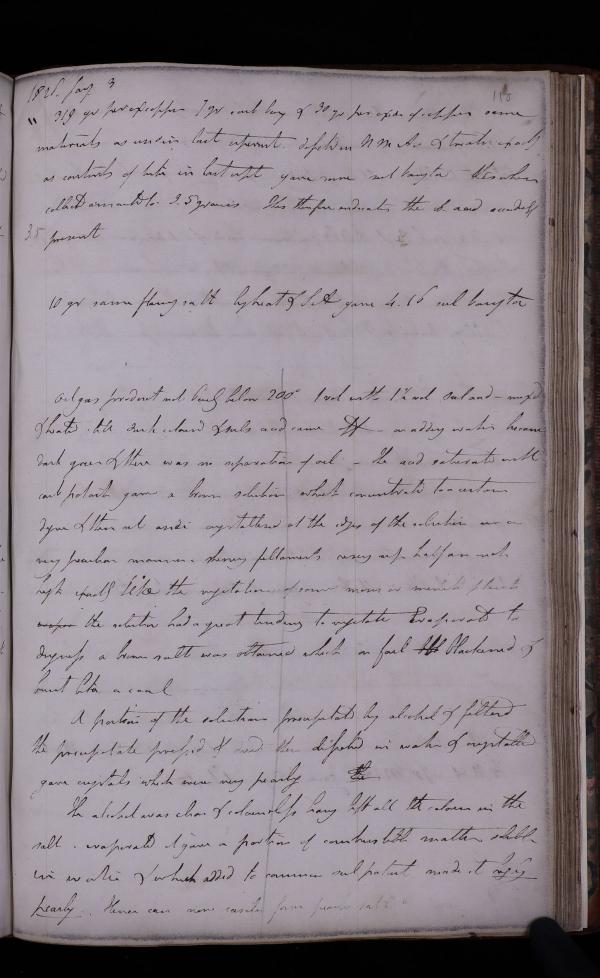 1826. Jany 3
" 319 gr peroxcopper 7 gr carb bary & 30 gr peroxide of copper same
materials as used in last experiment. dissolved in N M A & treated exactly
as contents of tube in last expt gave some sul baryta - this when
collected amounted to 3.5 grains This therefore indicates the S acid accidentally
3.5 present
10 gr same flaming salt by heat & S A gave 4.16 sul baryta
Oil gas product not boiling below 200° 1 vol with 1½ vol Sul acid - mixed
& heated till dark coloured & sul acid came off - on adding water became
dark green & there was no separation of oil - The acid saturated with
carb potash gave a brown solution which concentrated to a certain
degree & then set aside crystallized at the edges of the solution in a
very peculiar manner shining fillaments rising up half an inch
high exactly like the vegetation of some moss or minute plants
the solution had a great tendency to vegetate Evaporated to
dryness a brown salt was obtained which on foil blackened &
burnt like a coal
A portion of the solution precipitated by alcohol & filtered
the precipitate pressed & dried then dissolved in water & crystallized
gave crystals which were very pearly
The alcohol was clear & colourless having left all the colour in the
salt. evaporated it gave a portion of combustible matter soluble
in water & which added to common sul potash made it
pearly. Hence can now easily form